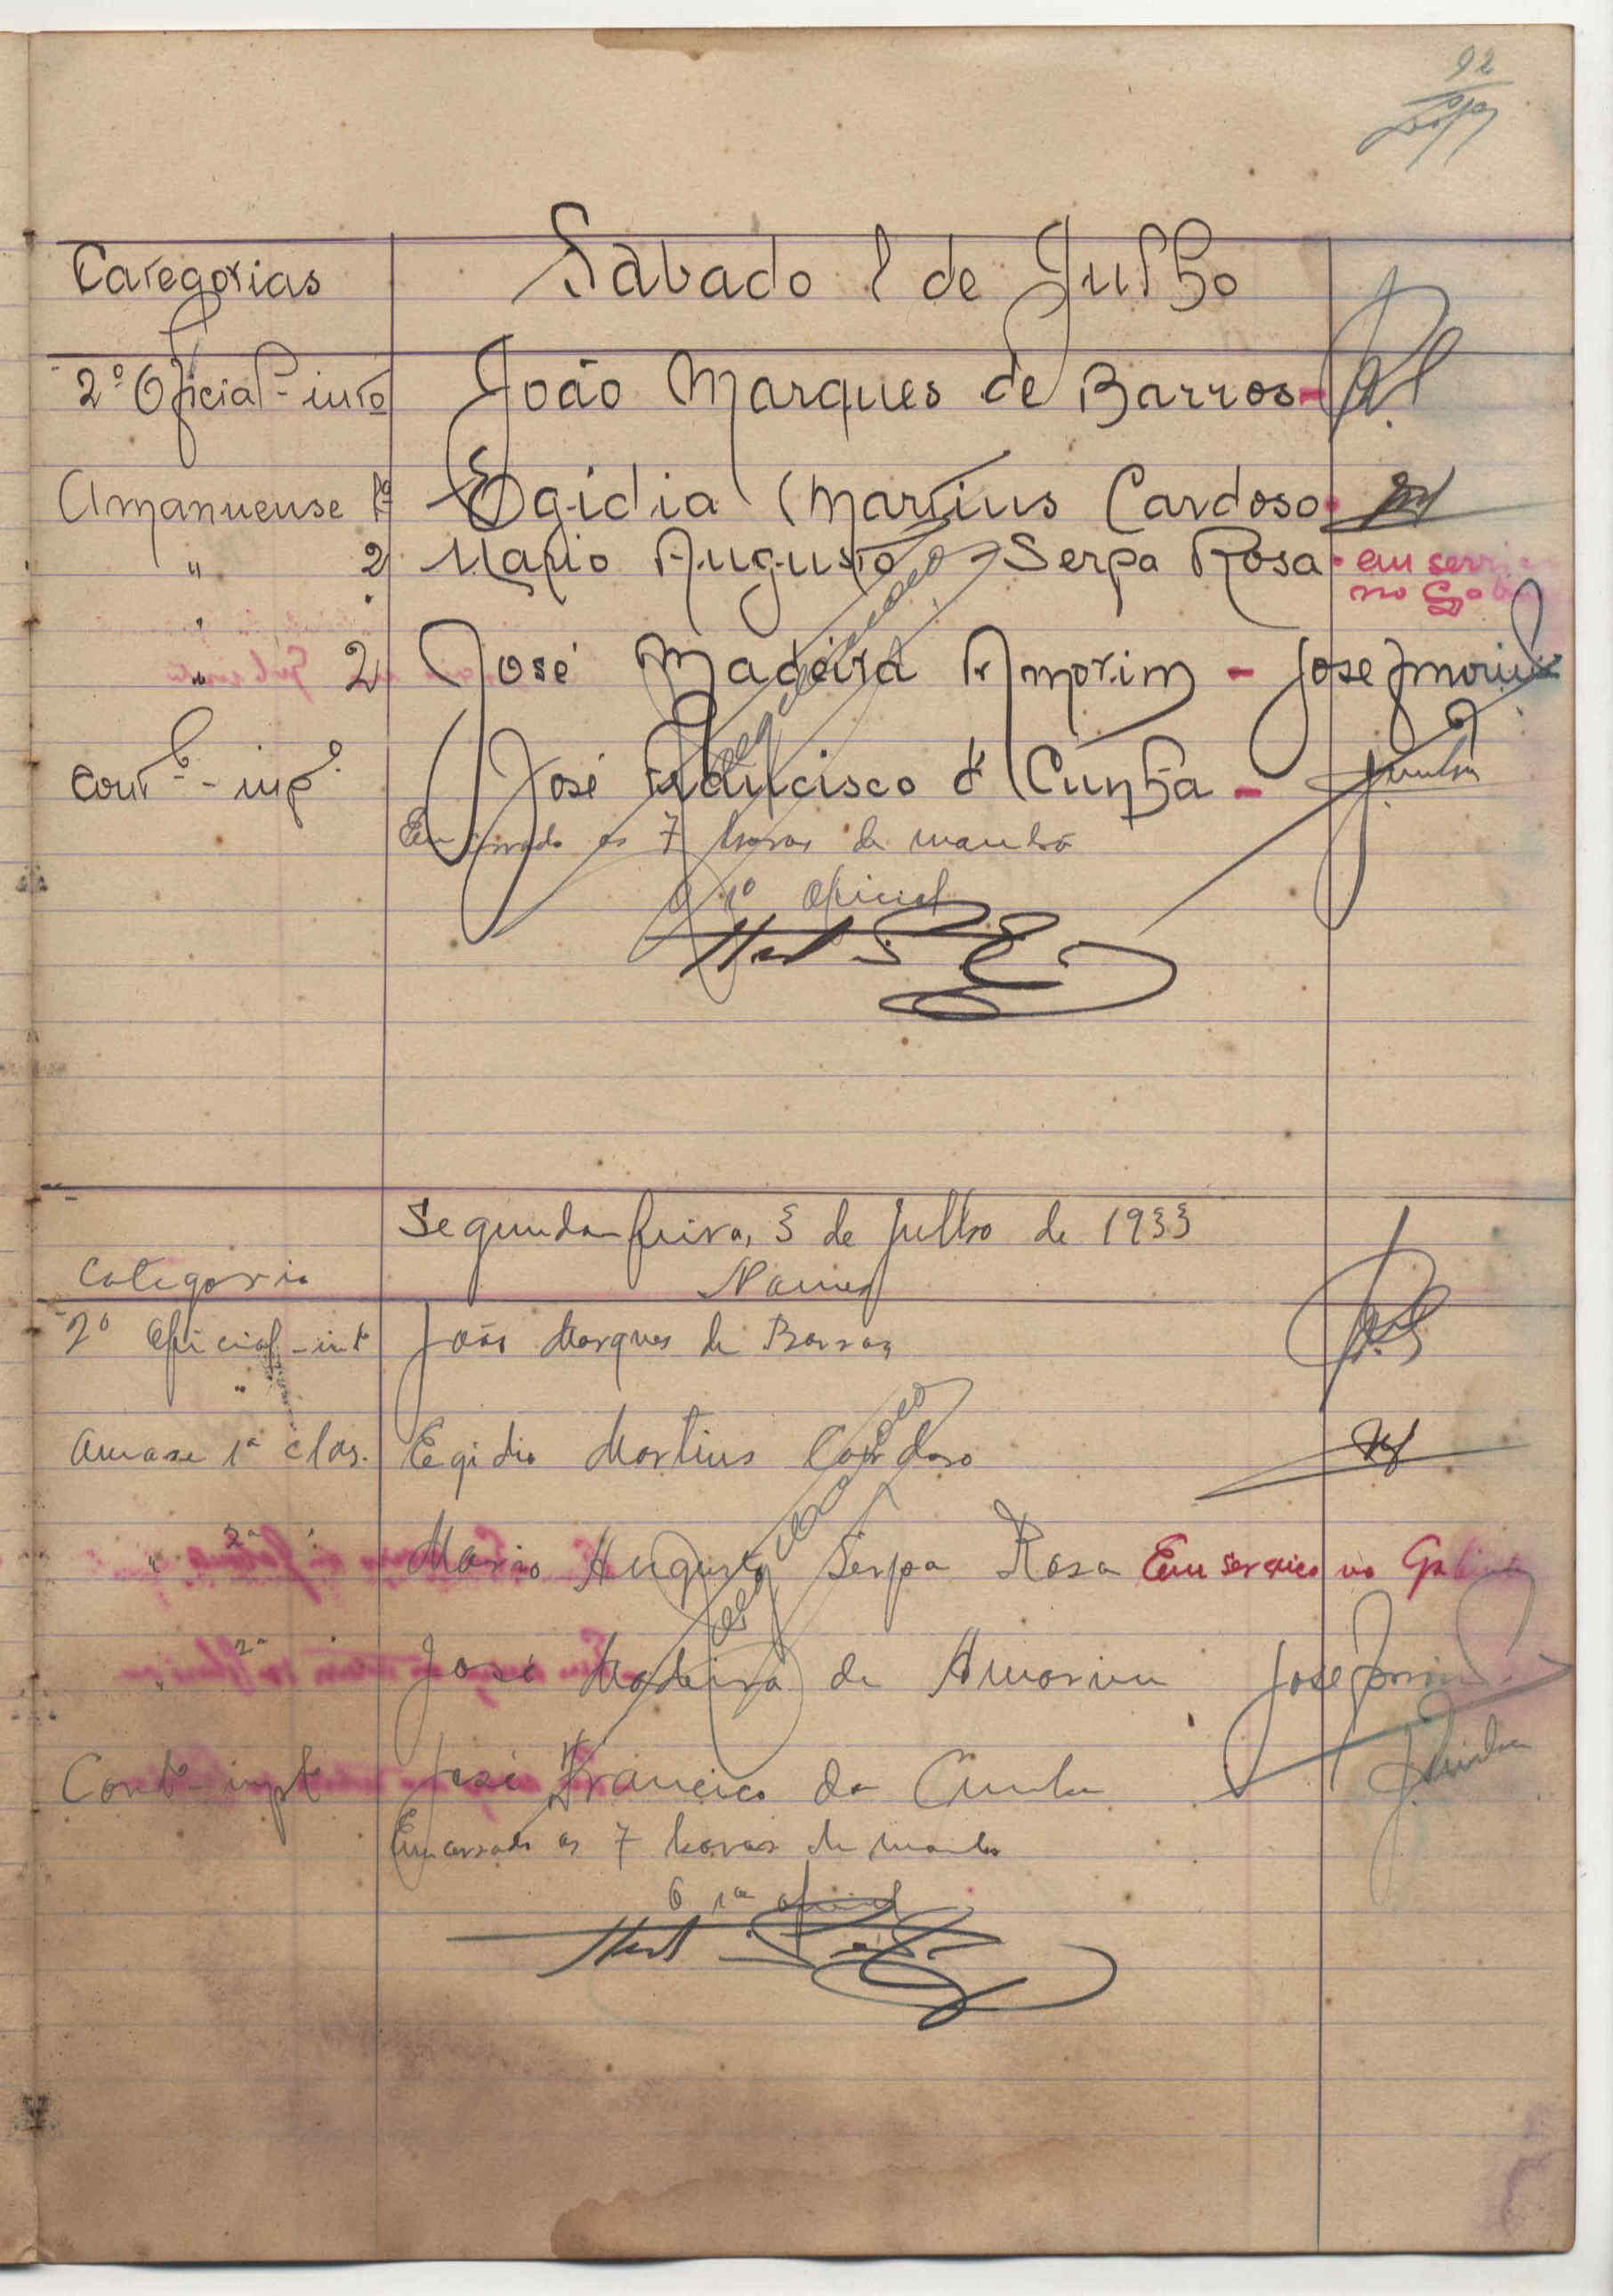 92
Categorias Sabado 1 de Julho
2º Oficial-intº João Marques de Barros -
Amanuense 1ª Egidia Martins Cardoso
" 2 Mario Augusto Serpa Rosa - em servi
no Gab
" 2 José Madeira Amorim - Jose Amorim
Contº - impº José Francisco d'Cunha - Cunha
Encerrado as 7 horas da manhã
O 1º Oficial
Segunda feira, 3 de Julho de 1933
Categoria Nomes
2º Oficial-intº João Marques de Barros
Amase 1ª clas. Egidio Martins Cardoso
" 2ª " Mario Augusto Serpa Rosa Em serviço no Gabinete
" 2ª " José Madeira de Amorim Jose Amorim
Contº - impº José Francisco da Cunha Cunha
Encerrado as 7 horas da manhã
O 1º oficial